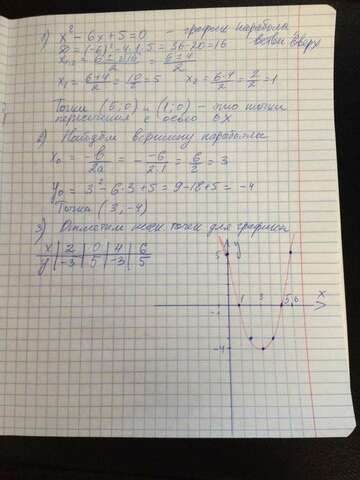 1) x² - 6x + 5 = 0 - график парабола
ветви вверх
D = (-6)² - 4·1·5 = 36 - 20 = 16
x₁,₂ = (6 ± √16)/2 = (6 ± 4)/2
x₁ = (6+4)/2 = 10/2 = 5 x₂ = (6-4)/2 = 2/2 = 1
Точки (5;0) и (1;0) - это точки
пересечения с осью OX
2) Найдём вершину параболы
x₀ = -b/2a = - -6/2·1 = 6/2 = 3
y₀ = 3² - 6·3 + 5 = 9 - 18 + 5 = -4
Точка (3,-4)
3) точек для графика
x 2 0 4 6
y -3 5 -3 5
y
5
x
1 3 5 6
-1
-4